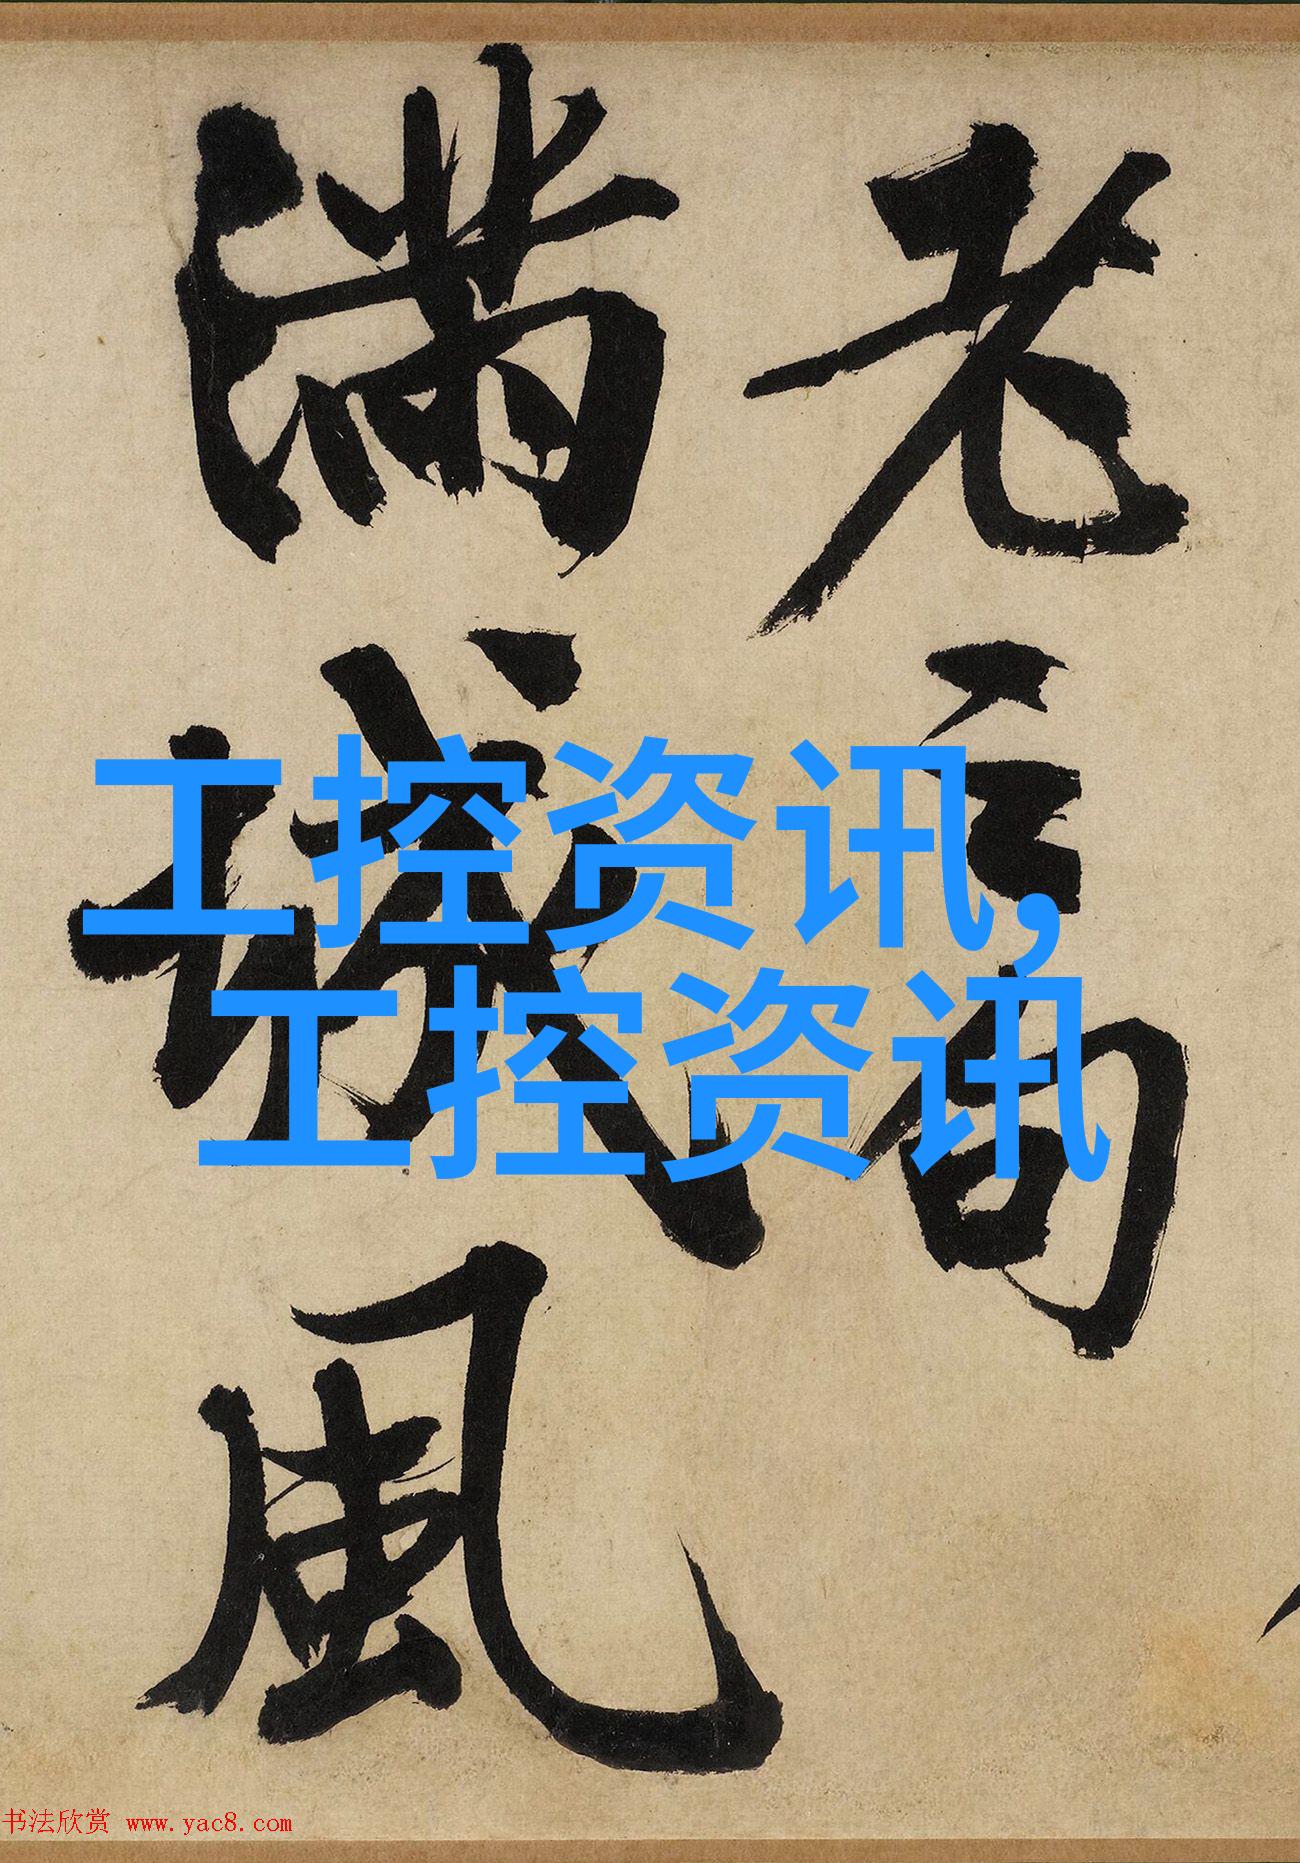 老言句
满城風
工控资讯,
工控资讯
书法欣赏 www.yac8.com